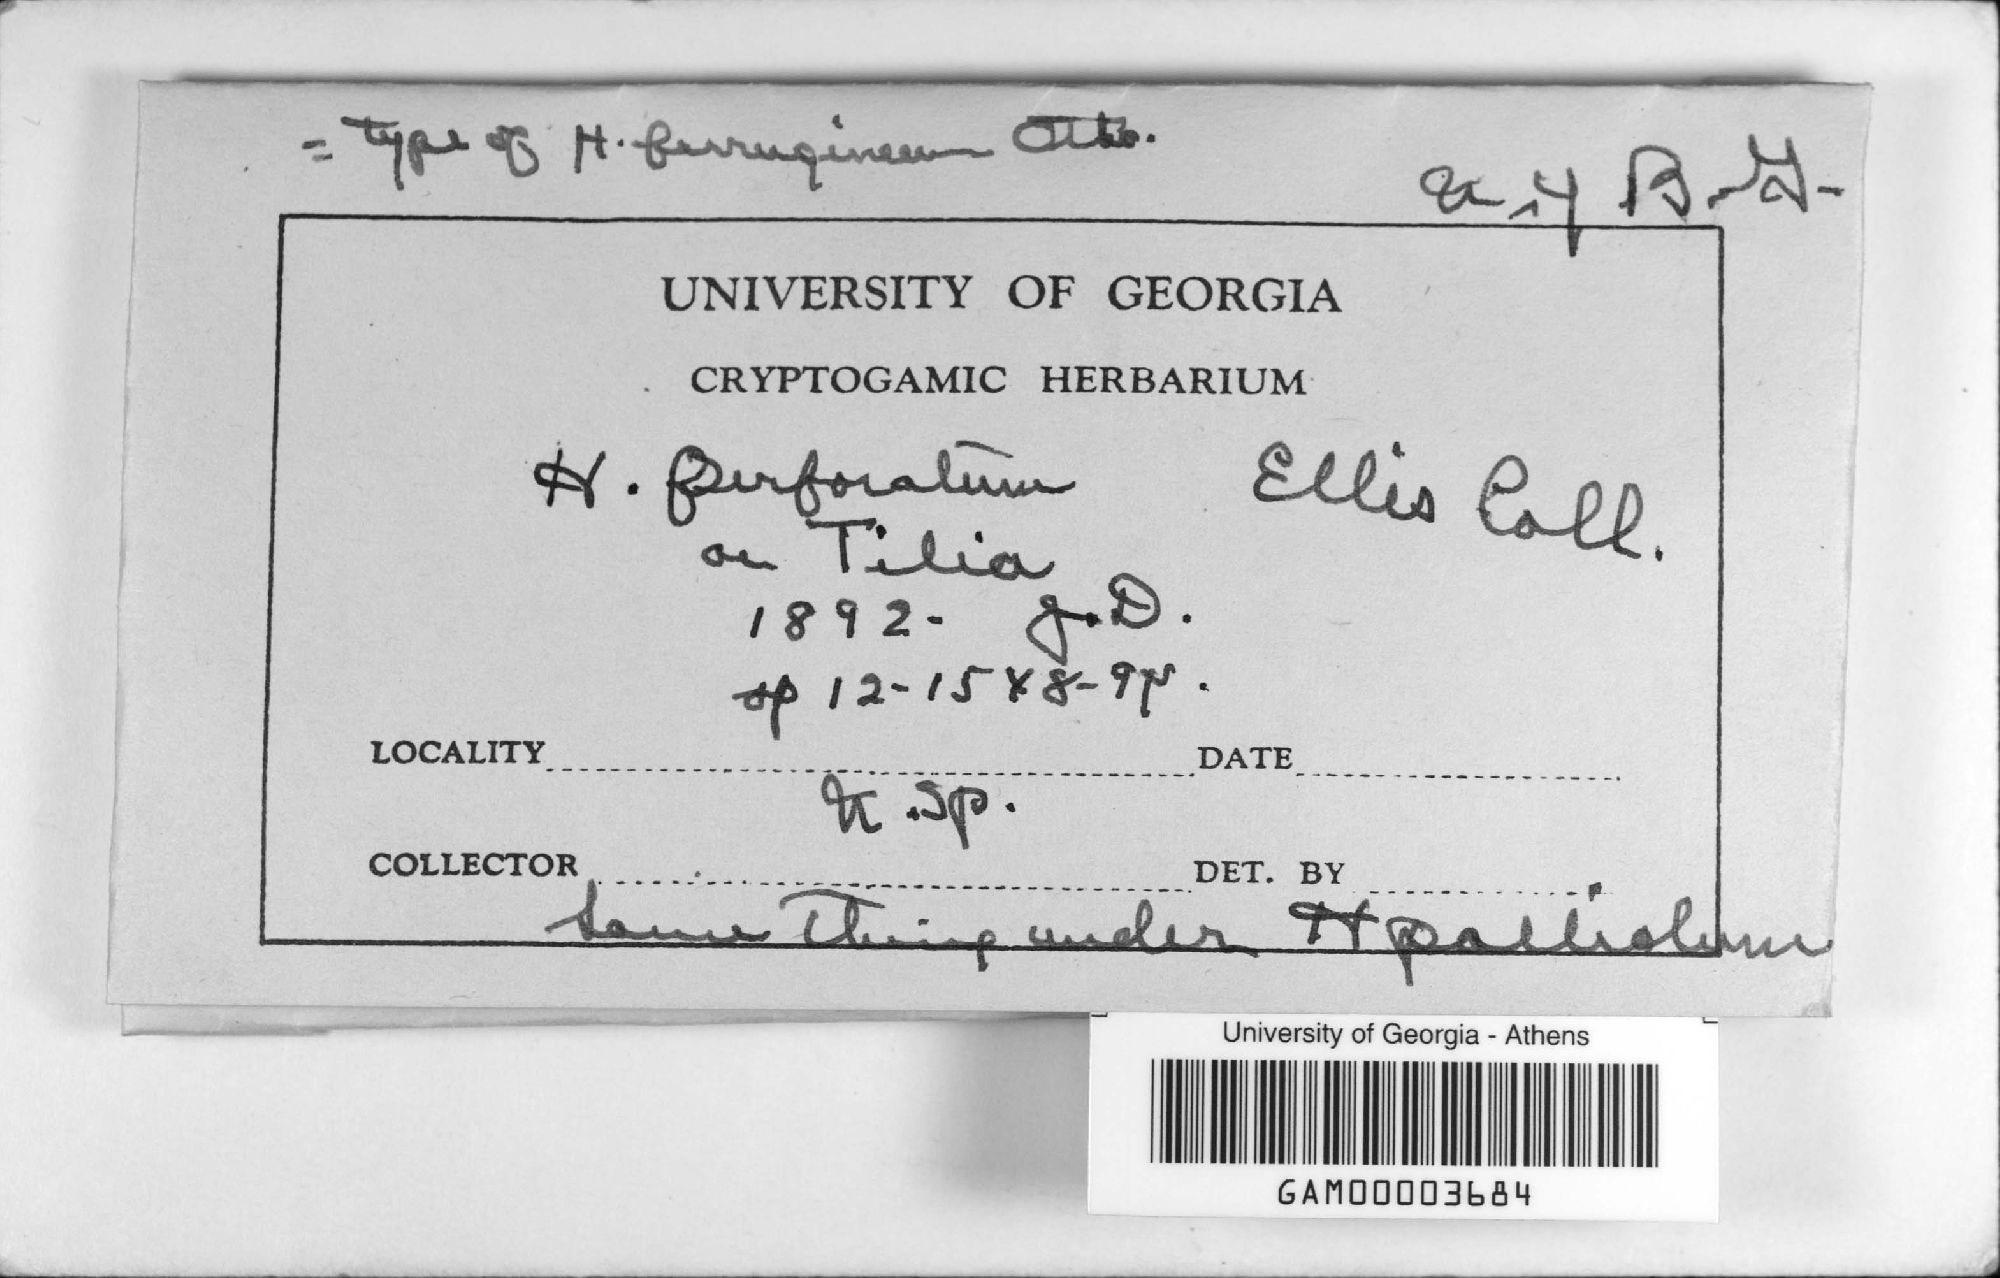 = type of H. ferrugineum Otto.
N.Y B.G-
UNIVERSITY OF GEORGIA
CRYPTOGAMIC HERBARIUM
H. perforatum Ellis Coll.
on Tilia
1892- J.D.
sp 12-15 x 8-9µ.
LOCALITY DATE
N.Sp.
COLLECTOR DET. BY
Same Thing under H palliolum
University of Georgia - Athens
GAM00003684